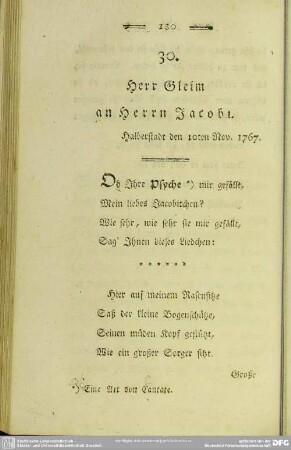 130
30.
Herr Gleim
an Herrn Jacobi.
Halberstadt den 10ten Nov. 1767.
Ob Ihre Psyche *) mir gefällt,
Mein liebes Jacobitchen?
Wie sehr, wie sehr sie mir gefällt,
Sag' Ihnen dieses Liedchen:
* * * * * *
Hier auf meinem Rasensitze
Saß der kleine Bogenschütze,
Seinen müden Kopf gestützt,
Wie ein großer Sorger sitzt.
Große
*) Eine Art von Cantate.